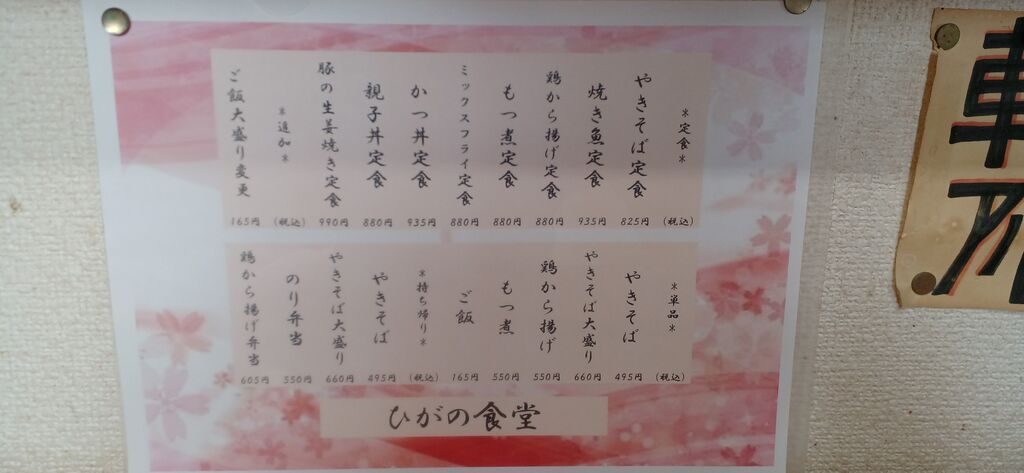 ＊定食＊ (税込)
やきそば定食 825円
焼き魚定食 935円
鶏から揚げ定食 880円
もつ煮定食 880円
ミックスフライ定食 880円
かつ丼定食 935円
親子丼定食 880円
豚の生姜焼き定食 990円
＊追加＊ (税込)
ご飯大盛り変更 165円
＊単品＊ (税込)
やきそば 495円
やきそば大盛り 660円
鶏から揚げ 550円
もつ煮 550円
ご飯 165円
＊持ち帰り＊ (税込)
やきそば 495円
やきそば大盛り 660円
のり弁当 550円
鶏から揚げ弁当 605円
ひがの食堂